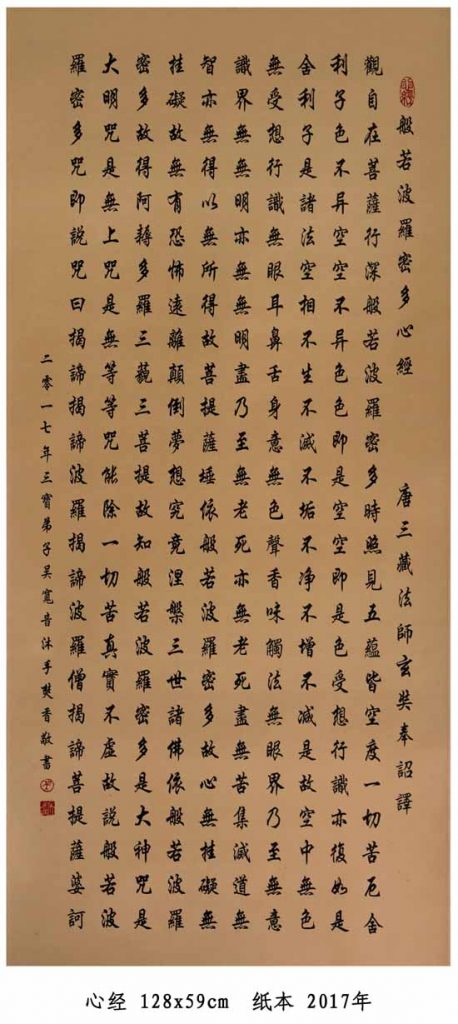 般若波羅密多心經 唐三藏法師玄奘奉詔譯
觀自在菩薩行深般若波羅密多時照見五蘊皆空度一切苦厄舍
利子色不异空空不异色色即是空空即是色受想行識亦復如是
舍利子是諸法空相不生不滅不垢不净不增不減是故空中無色
無受想行識無眼耳鼻舌身意無色聲香味觸法無眼界乃至無意
識界無無明亦無無明盡乃至無老死亦無老死盡無苦集滅道無
智亦無得以無所得故菩提薩埵依般若波羅密多故心無挂礙無
挂礙故無有恐怖遠離顛倒夢想究竟涅槃三世諸佛依般若波羅
密多故得阿耨多羅三藐三菩提故知般若波羅密多是大神咒是
大明咒是無上咒是無等等咒能除一切苦真實不虛故說般若波
羅密多咒即說咒曰揭諦揭諦波羅揭諦波羅僧揭諦菩提薩婆訶
二零一七年三寶弟子吴寬音沐手焚香敬書
心经 128x59cm 纸本 2017年